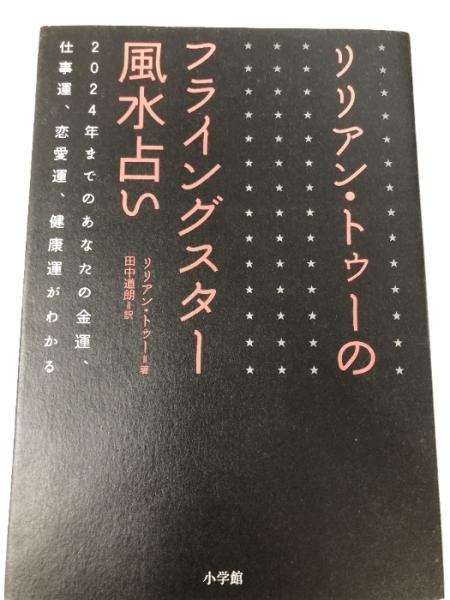 リリアン・トゥーの
フライングスター
風水占い
リリアン・トゥー=著
田中道朗=訳
2024年までのあなたの金運、
仕事運、恋愛運、健康運がわかる
小学館